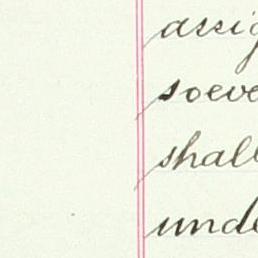 assig
soeve
shall
unde